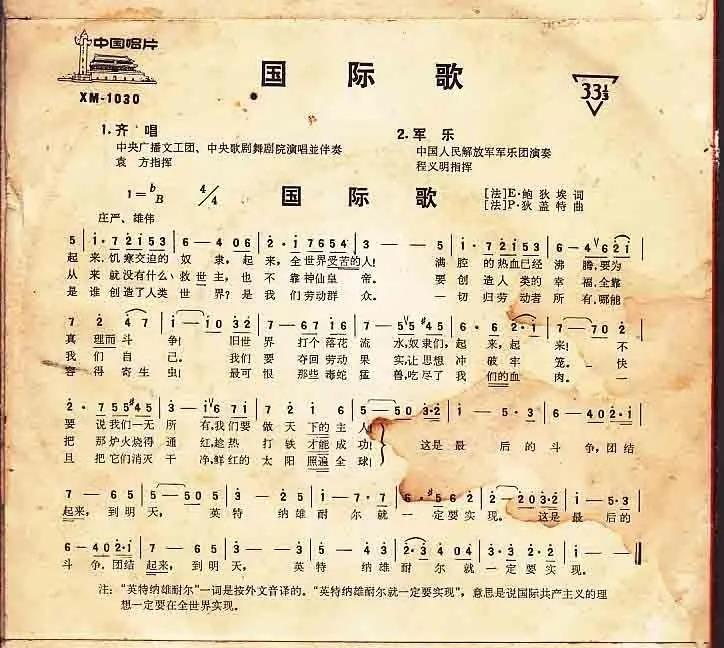 中国唱片
XM-1030
国际歌
33⅓
1.齐唱
中央广播文工团、中央歌剧舞剧院演唱並伴奏
袁方指挥
2.军乐
中国人民解放军军乐团演奏
程义明指挥
1=ᵇB 4/4
国际歌
[法]E·鲍狄埃 词
[法]P·狄盖特 曲
庄严、雄伟
起来,饥寒交迫的奴隶,起来,全世界受苦的人!满腔的热血已经沸腾,要为
从来就没有什么救世主,也不靠神仙皇帝。要创造人类的幸福,全靠
是谁创造了人类世界?是我们劳动群众。一切归劳动者所有,哪能
真理而斗争!旧世界打个落花流水,奴隶们,起来,起来!不
我们自己。我们要夺回劳动果实,让思想冲破牢笼。快
容得寄生虫!最可恨那些毒蛇猛兽,吃尽了我们的血肉。一
要说我们一无所有,我们要做天下的主人!
把那炉火烧得通红,趁热打铁才能成功!这是最后的斗争,团结
且把它们消灭干净,鲜红的太阳照遍全球!
起来,到明天,英特纳雄耐尔就一定要实现。这是最后的
斗争,团结起来,到明天,英特纳雄耐尔就一定要实现。
注:“英特纳雄耐尔”一词是按外文音译的。“英特纳雄耐尔就一定要实现”,意思是说国际共产主义的理
想一定要在全世界实现。